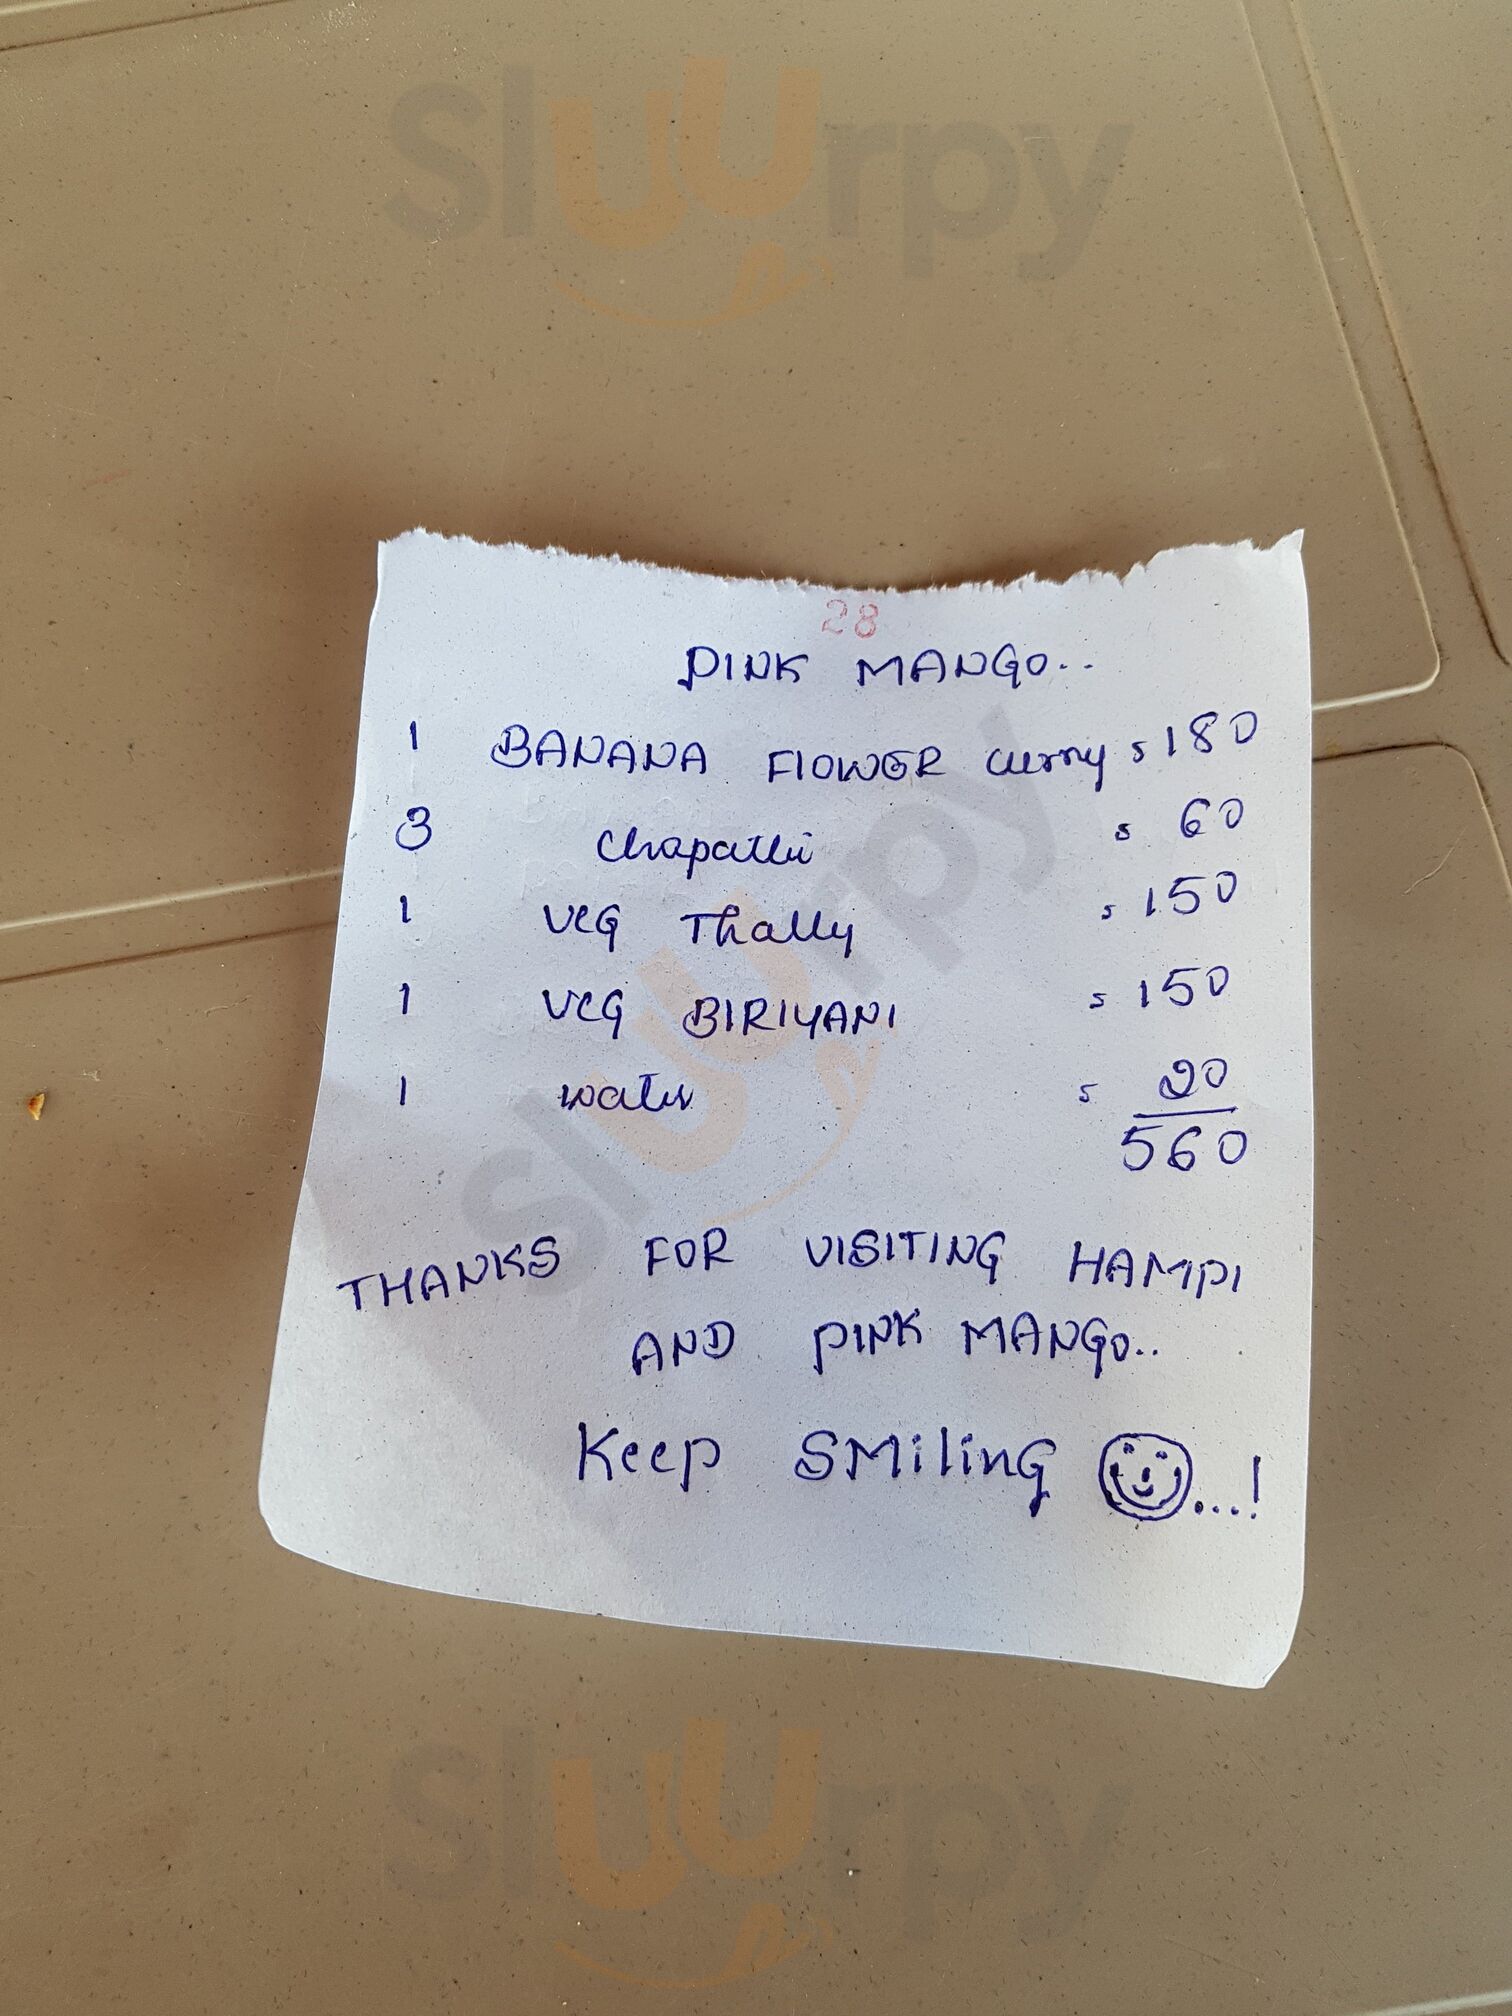 Sluurpy
28
PINK MANGO..
1 BANANA FLOWER curry = 180
3 chapathi = 60
1 veg Thally = 150
1 veg BIRIYANI = 150
1 water = 20
560
THANKS FOR VISITING HAMPI
AND PINK MANGO..
Keep SMiling ...!
Sluurpy
Sluurpy